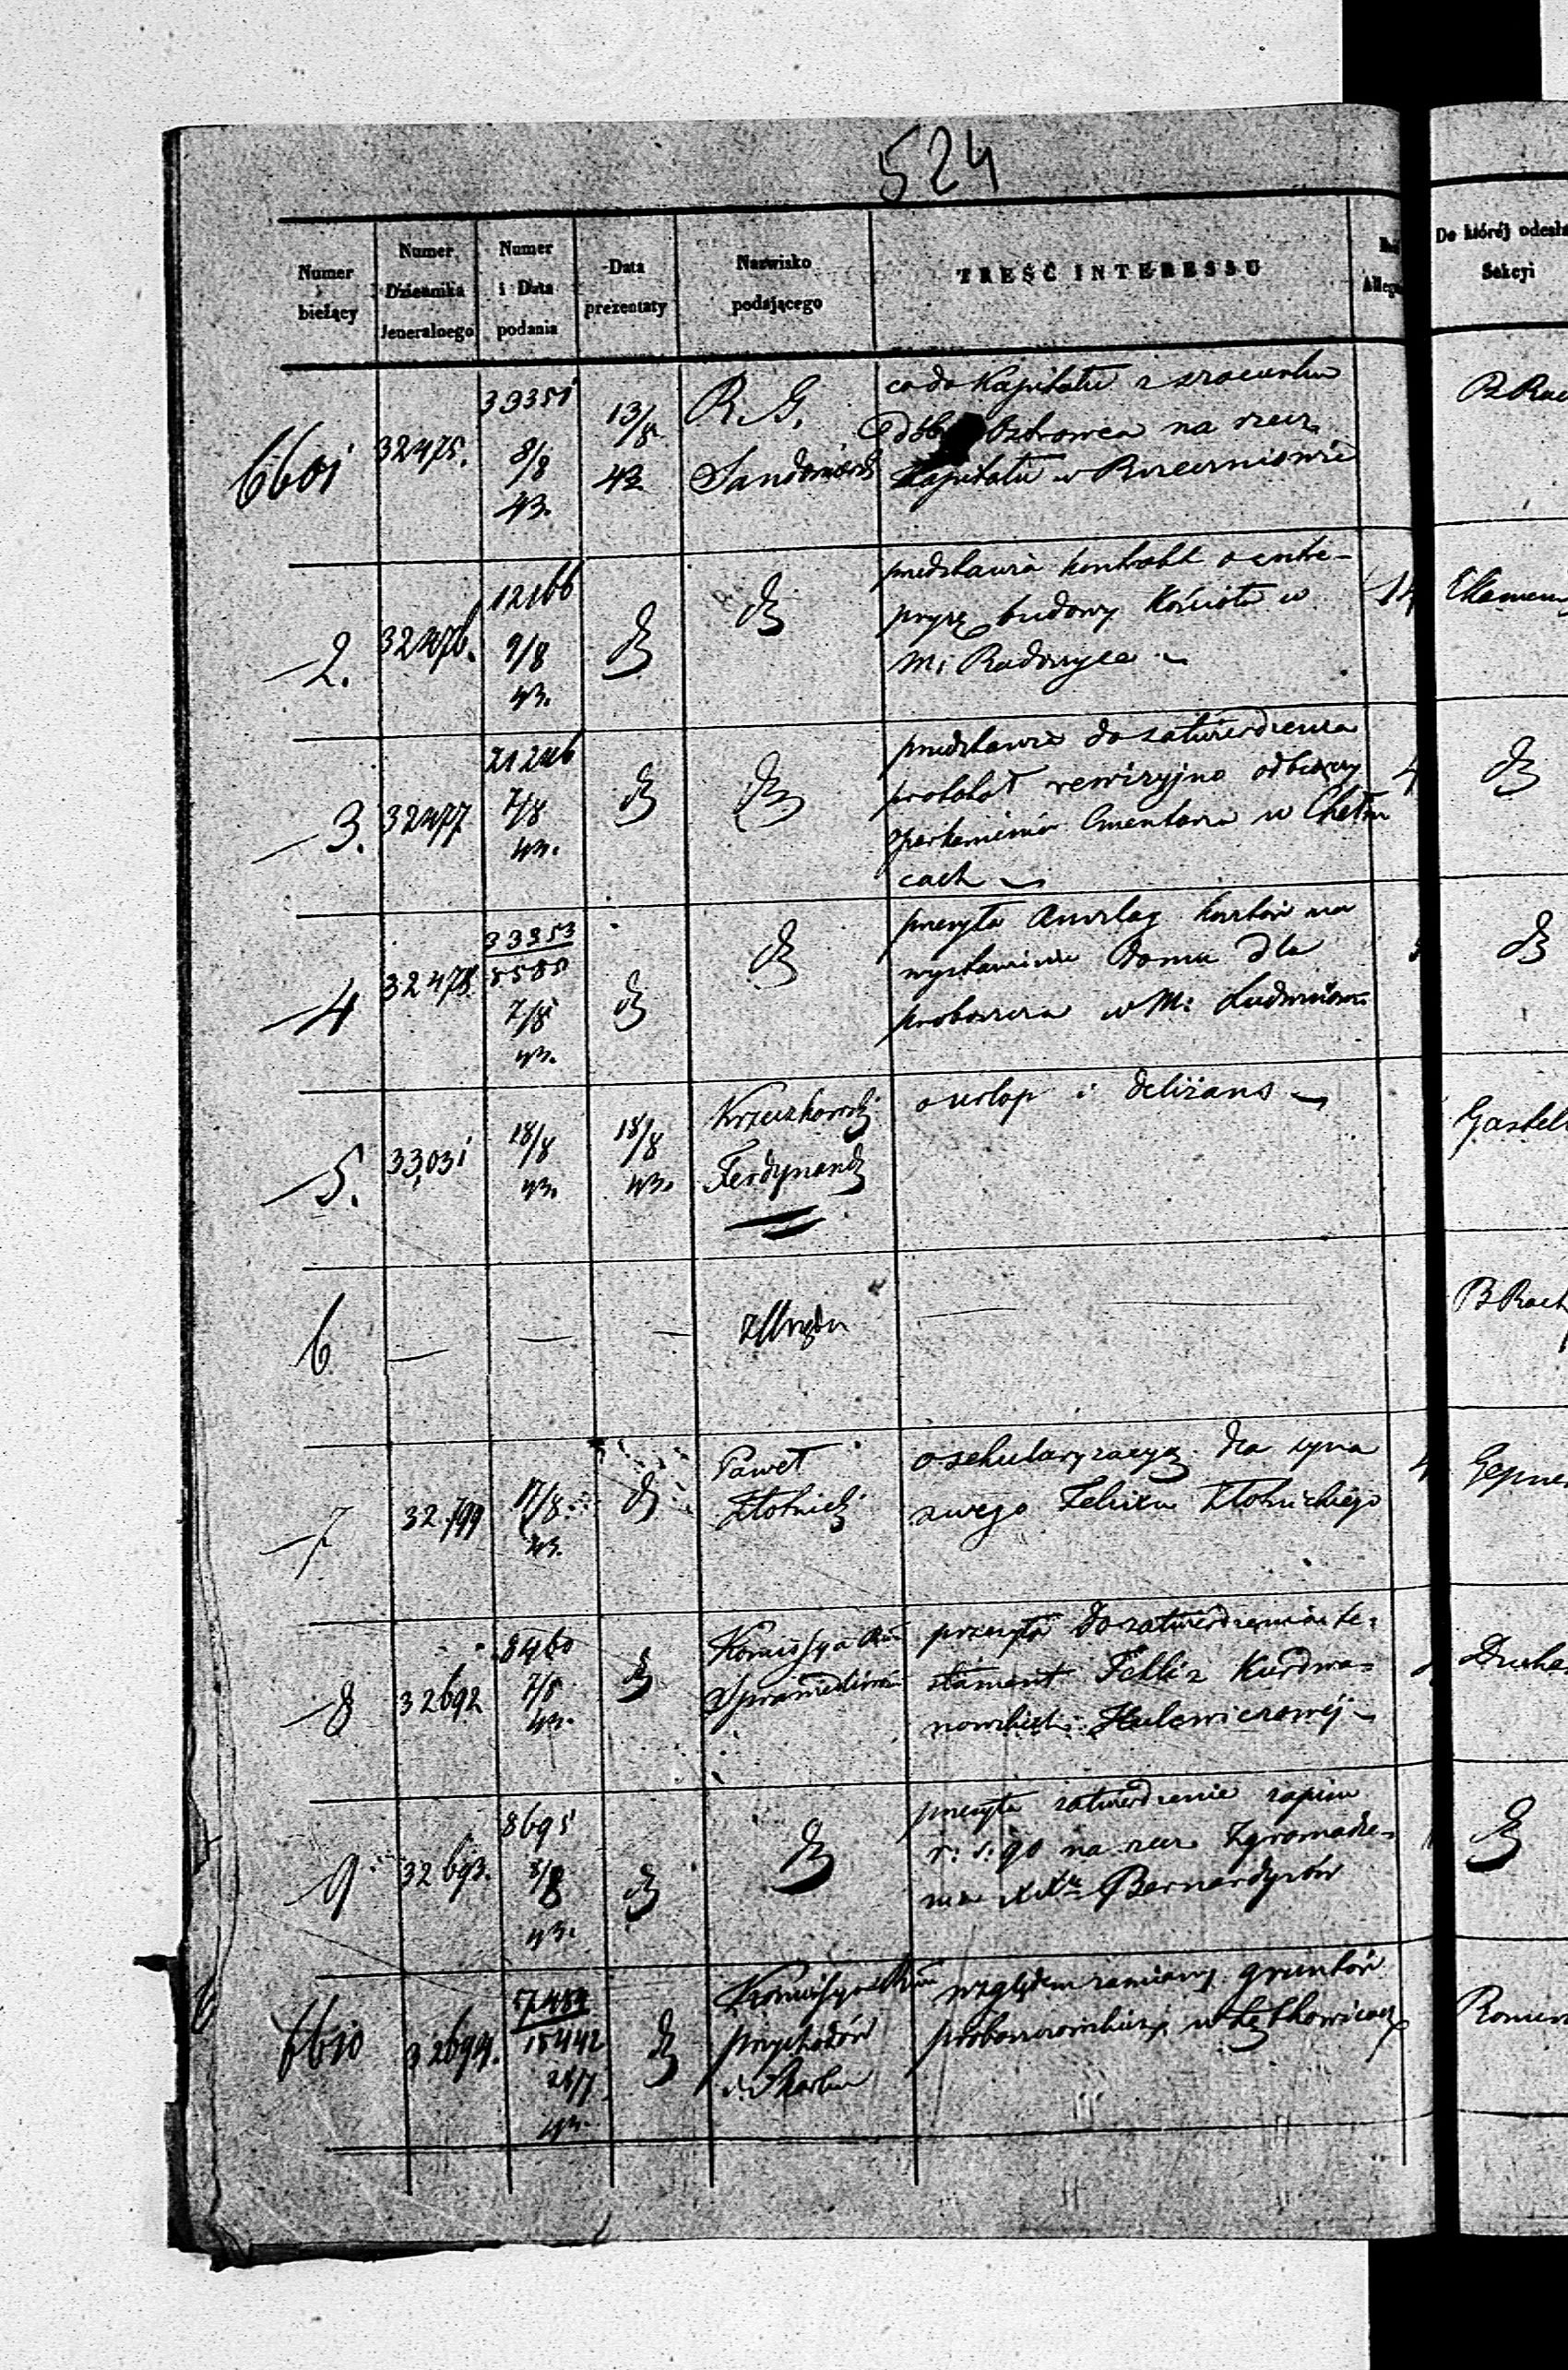 524
Numer bieżący
Numer Dziennika Jeneralnego
Numer i Data podania
Data prezentaty
Nazwisko podającego
TREŚĆ INTERESSU
Do któréj odesła
Sekcyi
6601
32475.
33351
8/8
43.
13/8
43
R. G.
Sandomiersk
co do Kapitału z szacunku
dóbr Ostrowca na rzecz
Kapitału w
B Rac
2.
32476.
12166
9/8
43.
d
d
przedstawia kontrakt o ente-
pryzę budowy Kościoła w
M: Radoszyce
14
3.
32477
21246
7/8
43.
d
d
przedstawia do zatwierdzenia
protokół rewizyjno odbiorczy
parkanienia Cmentarza w Chełm
cach
4
d
4
32478
33353
5585
7/8
43.
d
d
przesyła Anszlag kosztów na
wystawienie domu dla
proboszcza w M:
d
5.
33,031
18/8
43.
18/8
43.
Ferdynand
o urlop i deliżans
6
z Urzędu
B Rach
7
32.799
17/8
43.
d
Paweł
Złotnicki
o sekularyzacyę dla syna
swego Złotnickiego
8
32692
8460
7/8
43.
d
Komissya Rzą
Sprawiedliwości
przesyła do zatwierdzenia te-
stament Fellix Kurdwa=
nowskich Hulewiczowéj
9
32693.
8695
8/8
43.
d
d
przesyła zatwierdzenie zapisu
r: s: 90 na rzecz Zgromadze-
nia XX Bernardynów
d
6610
32694.
17484
15442
28/7
43.
d
Komissya Rzą
przychodów
i Skarbu
względem zamiany gruntów
proboszczowskich w Łętkowicach